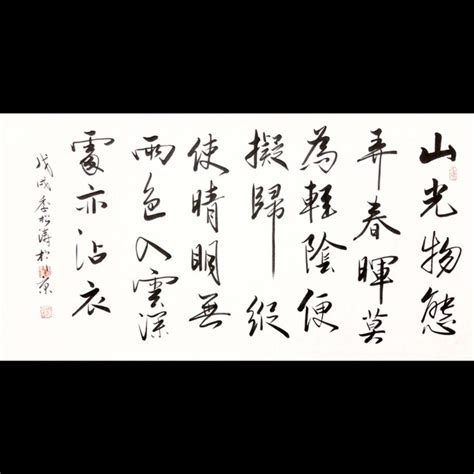 山光物態
弄春暉莫
為輕陰便
擬歸縱
使晴明無
雨色入雲深
處亦沾衣
戊戌李松濤於京